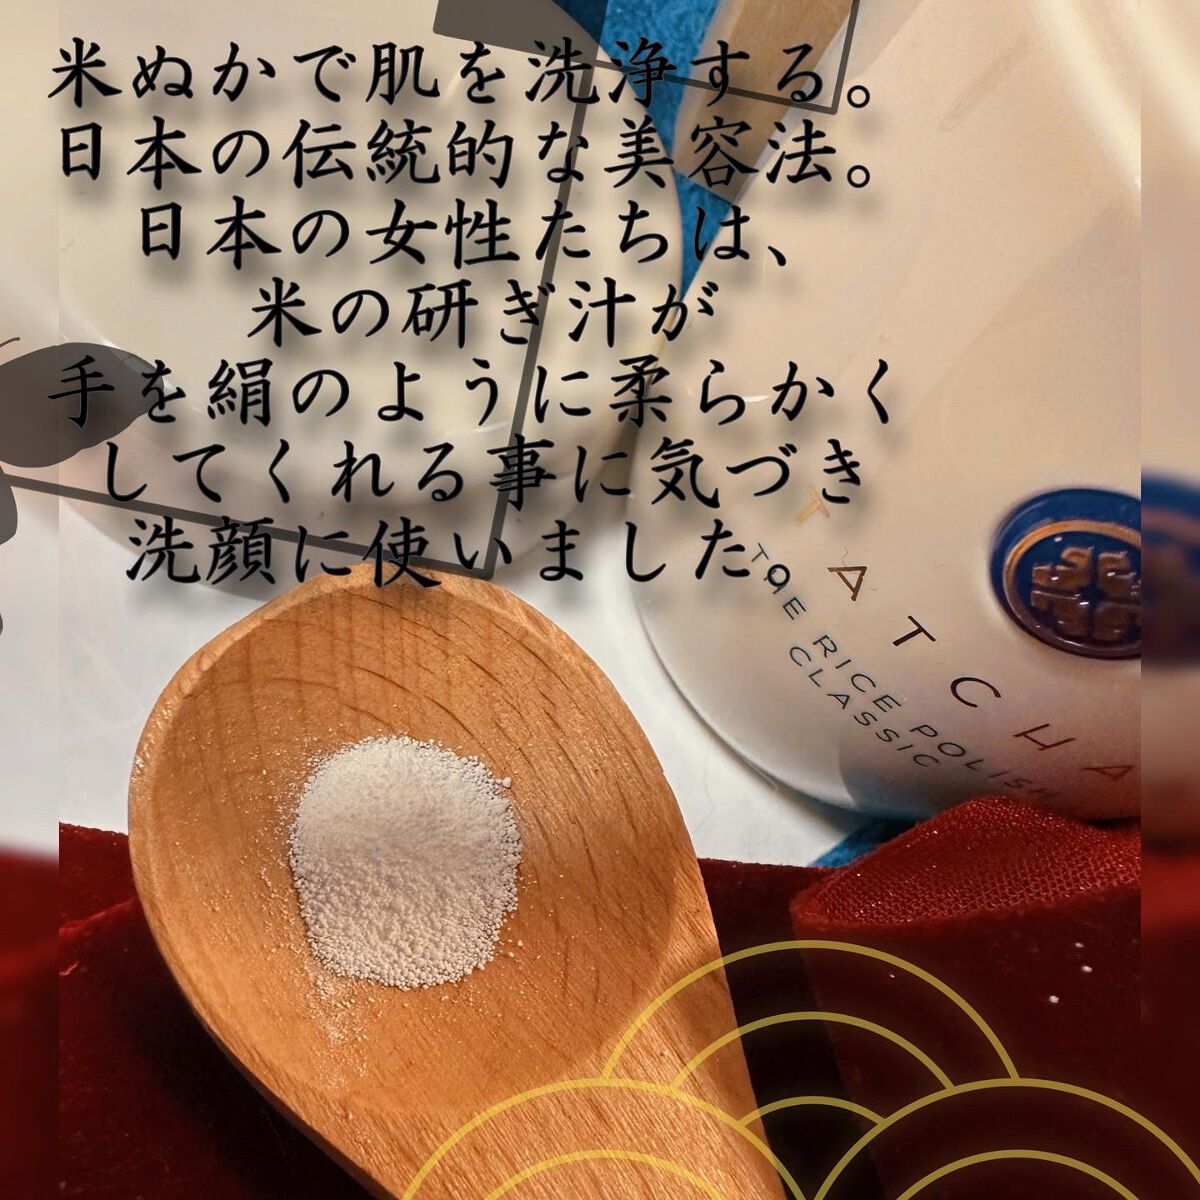 米ぬかで肌を洗浄する。
日本の伝統的な美容法。
日本の女性たちは、
米の研ぎ汁が
手を絹のように柔らかく
してくれる事に気づき
洗顔に使いました。
TATCHA
THE RICE POLISH
CLASSIC